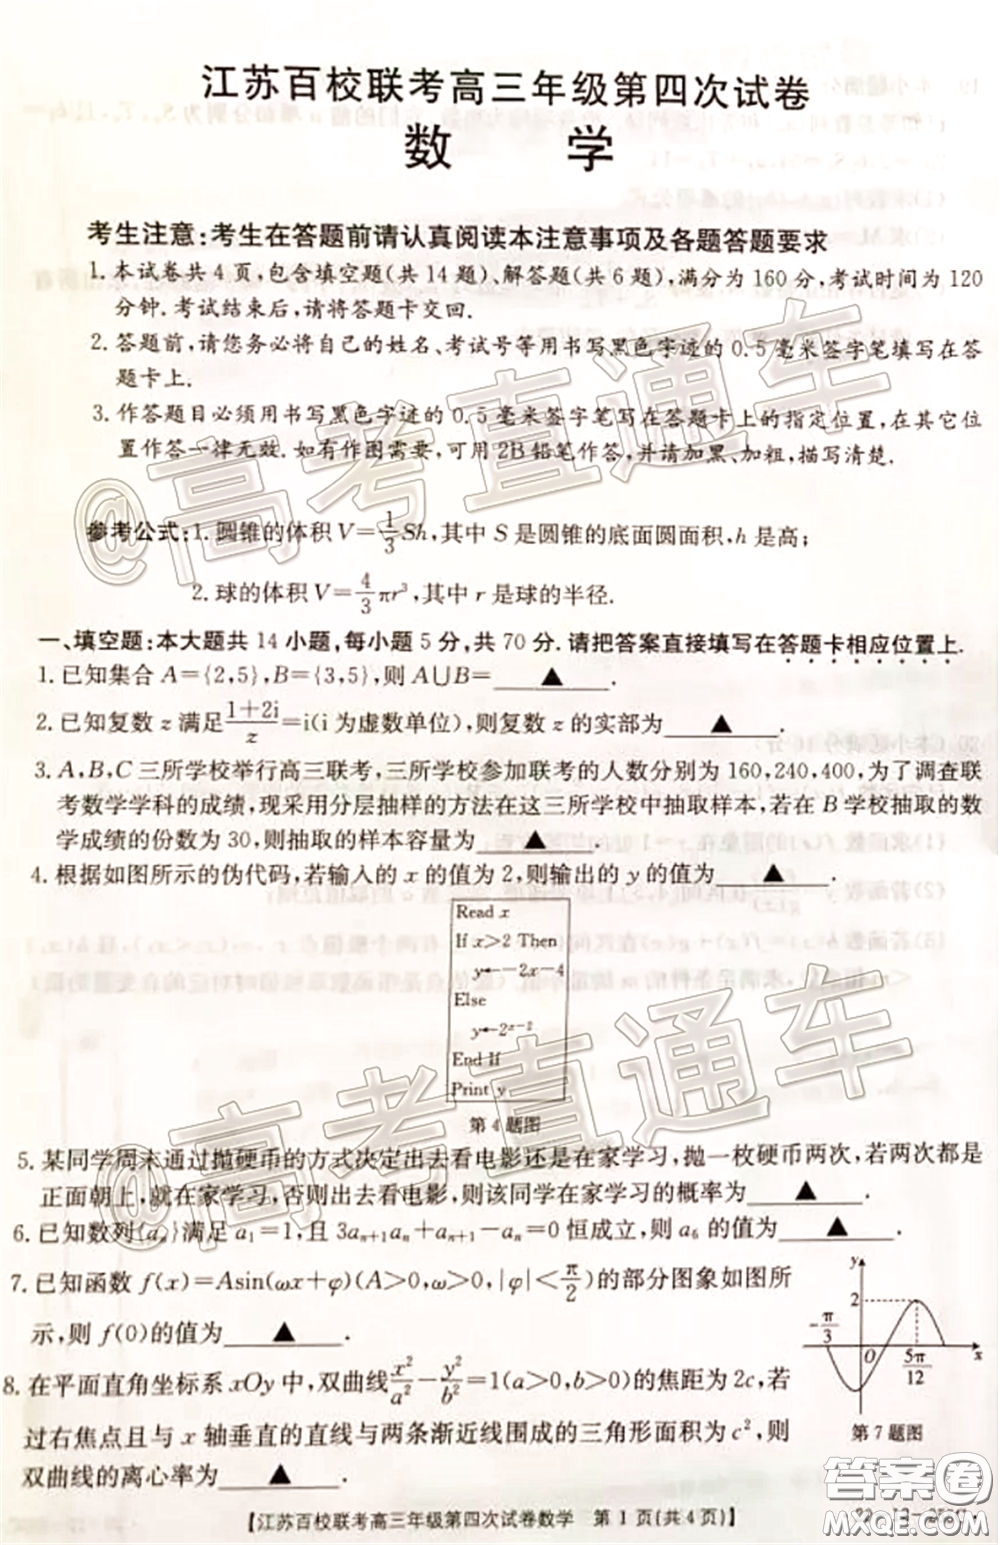 江苏百校联考高三年级第四次试卷
数 学
考生注意:考生在答题前请认真阅读本注意事项及各题答题要求
1. 本试卷共4页,包含填空题(共14题)、解答题(共6题),满分为160分,考试时间为120
分钟.考试结束后,请将答题卡交回.
2. 答题前,请您务必将自己的姓名、考试号等用书写黑色字迹的0.5毫米签字笔填写在答
题卡上.
3. 作答题目必须用书写黑色字迹的0.5毫米签字笔写在答题卡上的指定位置,在其它位
置作答一律无效.如有作图需要,可用2B铅笔作答,并请加黑、加粗,描写清楚.
参考公式:1. 圆锥的体积V=1/3Sh,其中S是圆锥的底面圆面积,h是高;
2. 球的体积V=4/3πr³,其中r是球的半径.
一、填空题:本大题共14小题,每小题5分,共70分.请把答案直接填写在答题卡相应位置上.
1. 已知集合A={2,5},B={3,5},则A∪B=▲.
2. 已知复数z满足(1+2i)/z=i(i为虚数单位),则复数z的实部为▲.
3. A,B,C三所学校举行高三联考,三所学校参加联考的人数分别为160,240,400,为了调查联
考数学学科的成绩,现采用分层抽样的方法在这三所学校中抽取样本,若在B学校抽取的数
学成绩的份数为30,则抽取的样本容量为▲.
4. 根据如图所示的伪代码,若输入的x的值为2,则输出的y的值为▲.
Read x
If x>2 Then
y←-2x-4
Else
y←2^(x-2)
End If
Print y
第4题图
5. 某同学周末通过抛硬币的方式决定出去看电影还是在家学习,抛一枚硬币两次,若两次都是
正面朝上,就在家学习,否则出去看电影,则该同学在家学习的概率为▲.
6. 已知数列{aₙ}满足a₁=1,且3aₙ₊₁aₙ+aₙ₊₁-aₙ=0恒成立,则a₆的值为▲.
7. 已知函数f(x)=Asin(ωx+φ)(A>0,ω>0,|φ|<π/2)的部分图象如图所
示,则f(0)的值为▲.
y
2
-π/3
O
5π/12
x
第7题图
8. 在平面直角坐标系xOy中,双曲线x²/a²-y²/b²=1(a>0,b>0)的焦距为2c,若
过右焦点且与x轴垂直的直线与两条渐近线围成的三角形面积为c²,则
双曲线的离心率为▲.
【江苏百校联考高三年级第四次试卷数学 第1页(共4页)】
@高考直通车
@高考直通车
答案卷
MXQE.COM